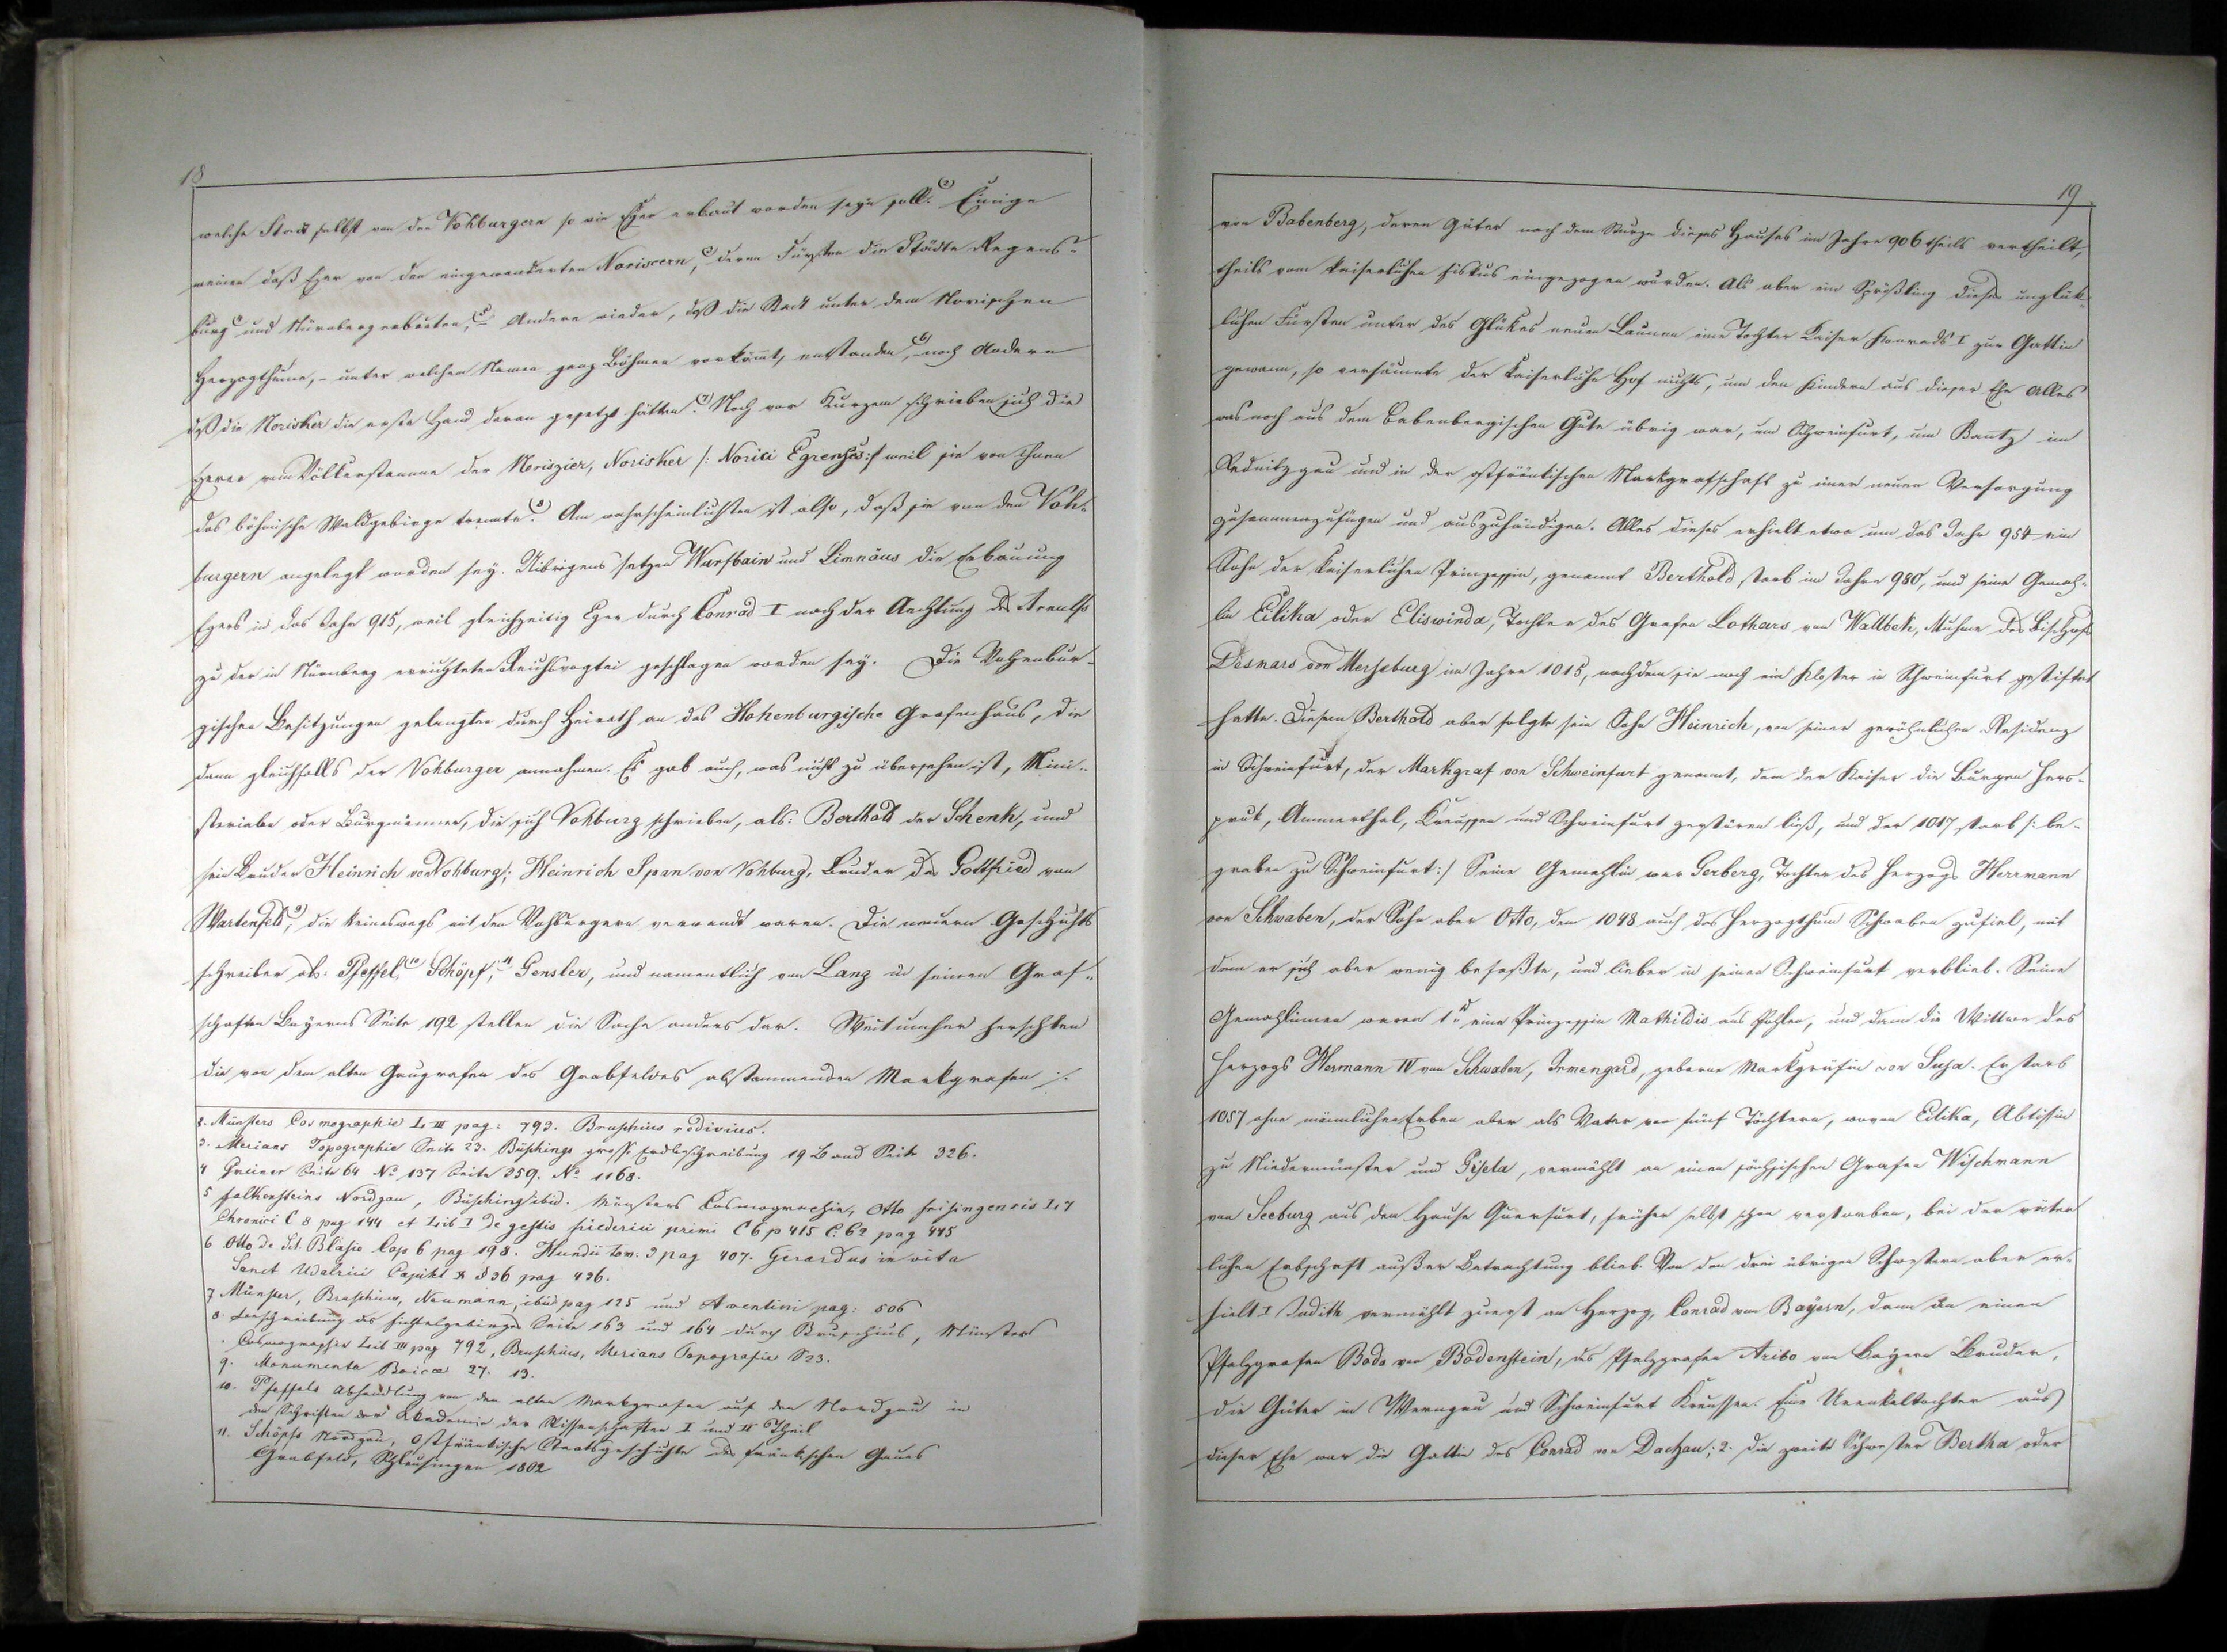 18
welche Stadt selbst von den Vohburgern so wie Eger erbaut worden seyn soll. 2) Einige
meinen daß Eger von den eingewanderten Noriscern, 3) deren Fürsten die Städte Regens-
burg 4) und Nürnberg erbauten, 5) Andere wieder, daß die Stadt unter dem Norischen
Herzogthume, - unter welchem Namen ganz Böhmen vorkömt, entstanden, 6) noch Andere
daß die Norisker die erste Hand daran gesetzt hätten. 7) Noch vor Kurzem schrieben sich die
Egerer vom Völkerstamme der Noriszier, Norisker /: Norici Egrenses :/ weil sie von ihnen
das böhmische Waldgebirge trennte. 8) Am wahrscheinlichsten ist also, daß sie von den Voh-
burgern angelegt worden sey. Übrigens setzen Wurfbain und Limnäus die Erbauung
Egers in das Jahr 915, weil gleichzeitig Eger durch Conrad I nach der Aechtung des Arnulfs
zu der in Nürnberg errichteten Reichsvogtei geschlagen worden sey. Die Vohenbur-
gischen Besitzungen gelangten durch Heirath an das Hohenburgische Grafenhaus, die
dann gleichfalls der Vohburger annahmen. Es gab auch, was nicht zu übersehen ist, Mini-
sterialen oder Burgmänner, die sich Vohburg schrieben, als: Berthold der Schenk, und
sein Bruder Heinrich von Vohburg; Heinrich Span von Vohburg, Bruder des Gottfried von
Wartenfels, 9) die keineswegs mit den Vohburgern verwandt waren. Die neuern Geschichts
schreiber als: Pfeffel, 10 Schöpf, 11 Gensler, und namentlich von Lang in seinen Graf-
schaften Bayerns Seite 192 stellen die Sache anders dar. Weit umher herrschten
die von dem alten Gaugrafen des Grabfeldes abstammenden Markgrafen ./.
2. Münsters Cosmographie L III pag: 793. Bruschius redivius.
3. Merians Topographie Seite 23. Büschings große Erdbeschreibung 19 Band Seite 326.
4 Greiner Seite 64 No 137 Seite 259. No 1168.
5 Falkensteins Nordgau, Büsching ibid. Münsters Cosmographie, Otto freisingensis L 7
Chronici C 8 pag 144 et Lib I de gestis friederici primi C 6 p 415 C: 62 pag 445
6 Otto de Sct. Blasio Cap 6 pag 198. Hundii tom. 3 pag 407. Gerardus in vita
Sanct Udalrici Capitl x § 36 pag 436.
7 Münster, Bruschius, Neumann, ibid pag 125 und Aventini pag: 506
8. Beschreibung des Fichtelgebirges Seite 163 und 164 durch Bruschius, Münsters
Cosmographie Lib III pag 792, Bruschius, Merians Topografie S 23.
9. Monumenta Boica 27. 13.
10. Pfeffels Abhandlung von den alten Markgrafen auf den Nordgau in
den Schriften der Akademie der Wissenschaften I und II Theil
11. Schöpfs Nordgau, Ostfränkische Staatsgeschichte des fränkischen Gaues
Grabfeld, Schleusingen 1802
19
von Babenberg, deren Güter nach dem Sturze dieses Hauses im Jahre 906 theils vertheilt,
theils vom kaiserlichen Fiskus eingezogen wurden. Als aber ein Sprößling dieser unglük-
lichen Fürsten unter des Glükes neuen Launen eine Tochter Kaiser Konrads I zur Gattin
gewann, so versäumte der kaiserliche Hof nichts, um den Kindern aus dieser Ehe Alles
was noch aus dem babenbergischen Gute übrig war, um Schweinfurt, um Bantz im
Rednitzgau und in der ostfränkischen Markgrafschaft zu einer neuen Versorgung
zusammenzufügen und auszuhändigen. Alles dieses erhielt etwa um das Jahr 954 ein
Sohn der kaiserlichen Prinzessin, genannt Berthold starb im Jahre 980, und seine Gemah-
lin Eilika oder Eliswinda, Tochter des Grafen Lothars von Wallbek, Muhme des Bischofs
Desmars von Merseburg im Jahre 1015, nachdem sie noch ein Kloster in Schweinfurt gestiftet
hatte. Diesem Berthold aber folgte sein Sohn Heinrich, von seiner gewöhnlichen Residenz
in Schweinfurt, der Markgraf von Schweinfurt genannt, dem der Kaiser die Burgen Hers-
pruk, Ammerthal, Kreussen und Schweinfurt zerstören ließ, und der 1017 starb /: be-
graben zu Schweinfurt :/ Seine Gemahlin war Gerberg, Tochter des Herzogs Herrmann
von Schwaben, der Sohn aber Otto, dem 1048 auch das Herzogthum Schwaben zufiel, mit
dem er sich aber wenig befaßte, und lieber in seinem Schweinfurt verblieb. Seine
Gemahlinnen waren 1 eine Prinzessin Mathildis aus Pohlen, und dann die Wittwe des
Herzogs Hermann IV von Schwaben, Irmengard, geborne Markgräfin von Susa. Er starb
1057 ohne männlichen Erben aber als Vater von fünf Töchtern, wovon Eilika, Abtissin
zu Niedermünster und Gisela, vermählt an einen sächsischen Grafen Wischmann
von Seeburg aus dem Hause Querfurt, früher selbst schon verstorben, bei der väter
lichen Erbschaft außer Betrachtung blieb. Von den drei übrigen Schwestern aber er-
hielt I Judith vermählt zuerst an Herzog, Conrad von Bayern, dann an einen
Pfalzgrafen Bodo von Bodenstein, des Pfalzgrafen Aribo von Bayern Bruder,
die Güter in Werngau und Schweinfurt Kreussen. Eine Urenkeltochter aus
dieser Ehe war die Gattin des Conrad von Dachau; 2. die zweite Schwester Bertha oder